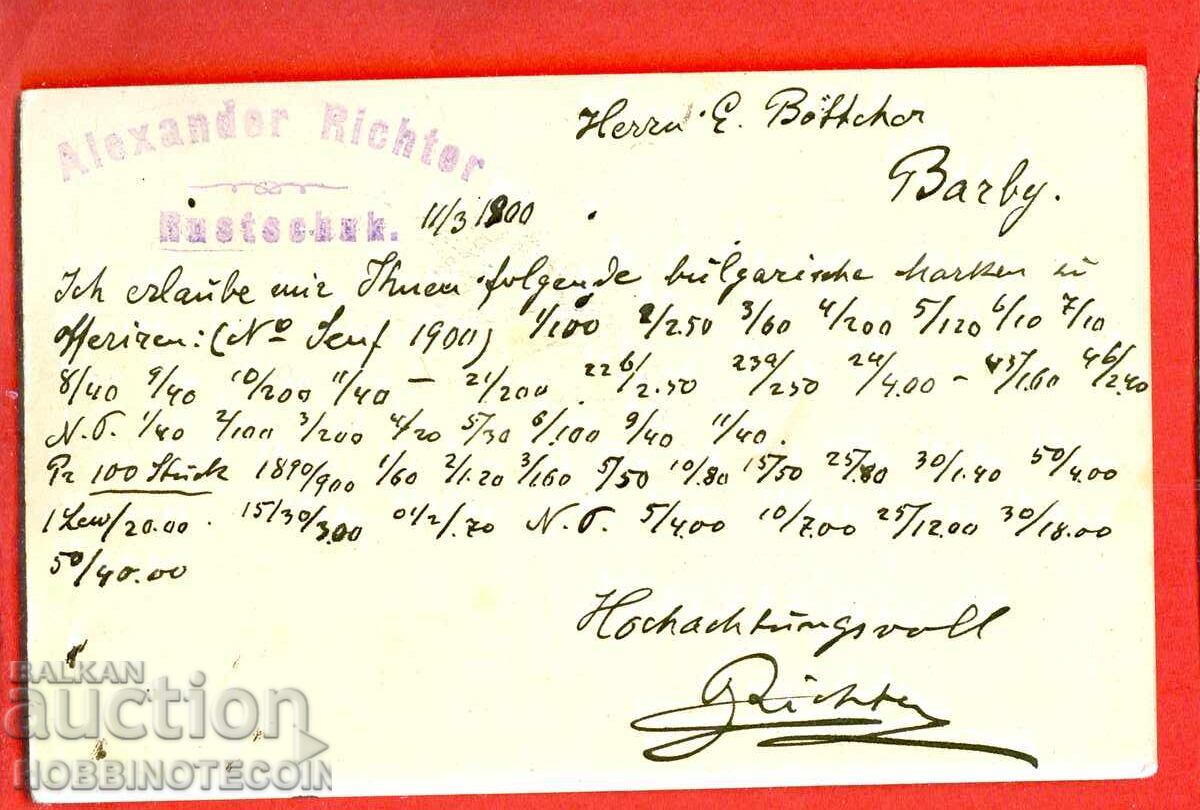 Alexander Richter
Rustschuk.
11/3 1900
Herrn E. Böttcher
Barby.
Ich erlaube mir Ihnen folgende bulgarische Marken zu
offeriren: (No Senf 1900) 1/100 2/2.50 3/60 4/200 5/120 6/10 7/10
8/40 9/40 10/200 11/40 — 21/200 22b/2.50 23a/250 24/4.00 — 45/1.60 46/2.40
N.P. 1/40 2/100 3/200 4/20 5/30 6/100 9/40 11/40.
Pr 100 Stück 1890/900 1/60 2/1.20 3/1.60 5/50 10/80 15/50 25/80 30/1.40 50/4.00
1 Lew/20.00. 15/30/3.00 01/2/.70 N.P. 5/4.00 10/7.00 25/12.00 30/18.00
50/40.00
Hochachtungsvoll
Richter
BALKAN
auction
HOBBINOTECOIN